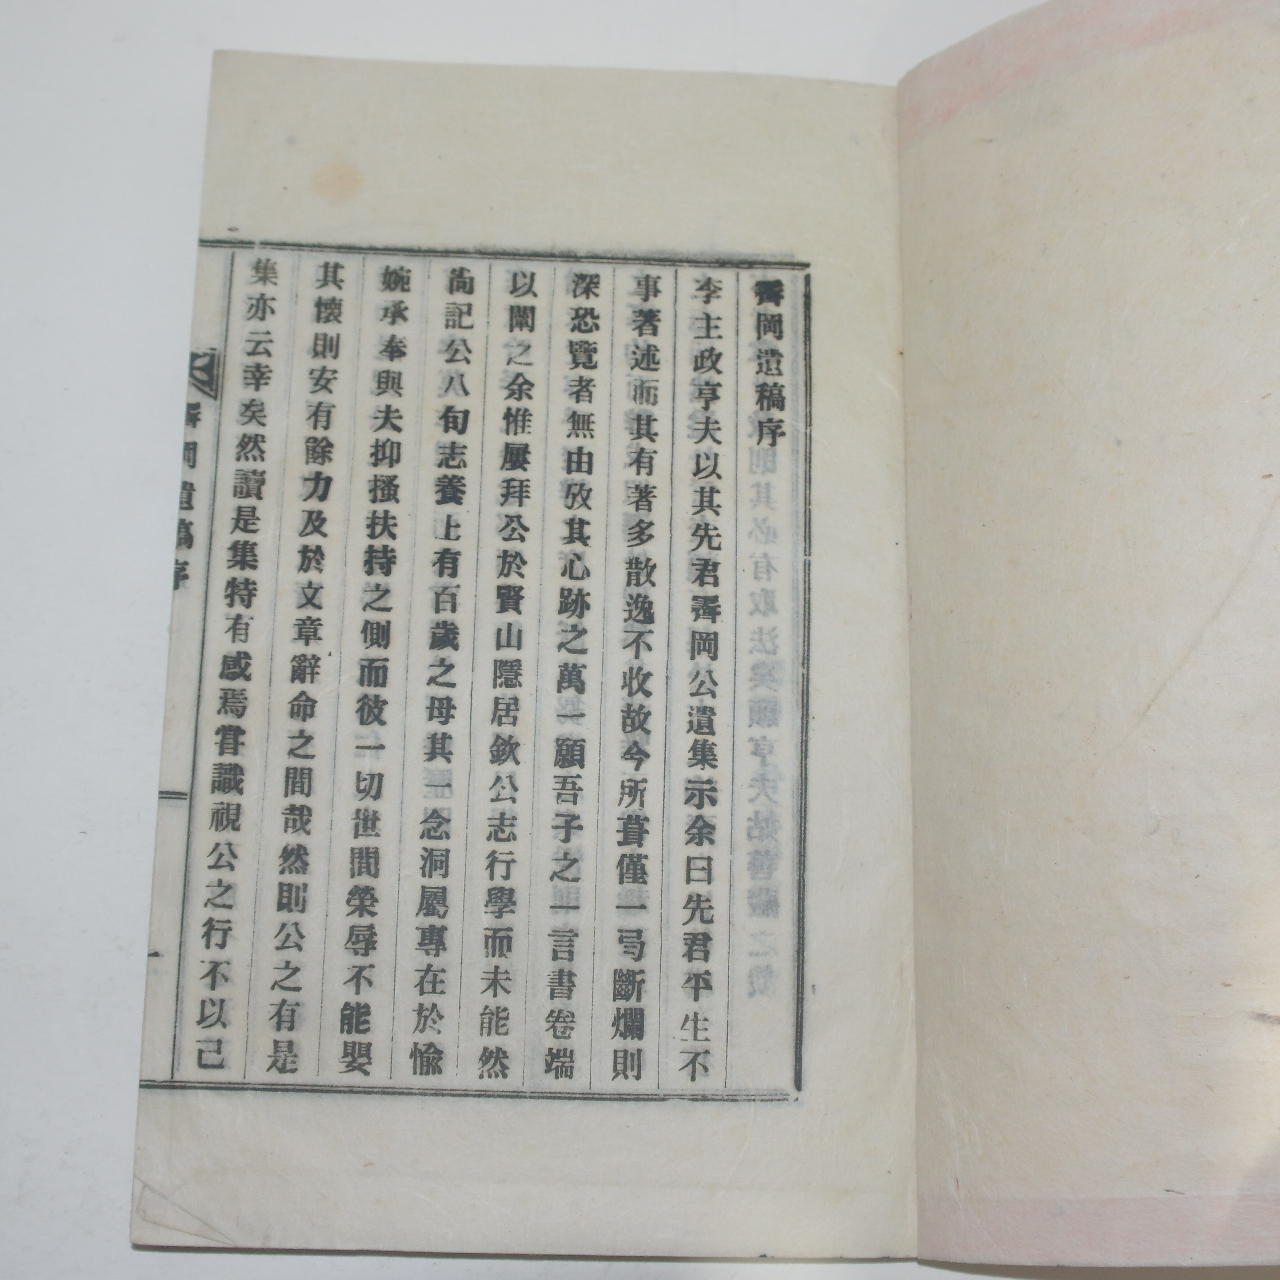 霽岡遺稿序
李主政亨夫以其先君霽岡公遺集示余曰先君平生不
事著述而其有著多散逸不收故今所葺僅一弓斷爛則
深恐覽者無由攷其心跡之萬一願吾子之一言書卷端
以闡之余惟屢拜公於賢山隱居欽公志行學而未能然
尙記公八旬志養上有百歲之母其一念洞屬專在於愉
婉承奉與夫抑搔扶持之側而彼一切世間榮辱不能嬰
其懷則安有餘力及於文章辭命之間哉然則公之有是
集亦云幸矣然讀是集特有感焉嘗議視公之行不以己
霽岡遺稿序
一